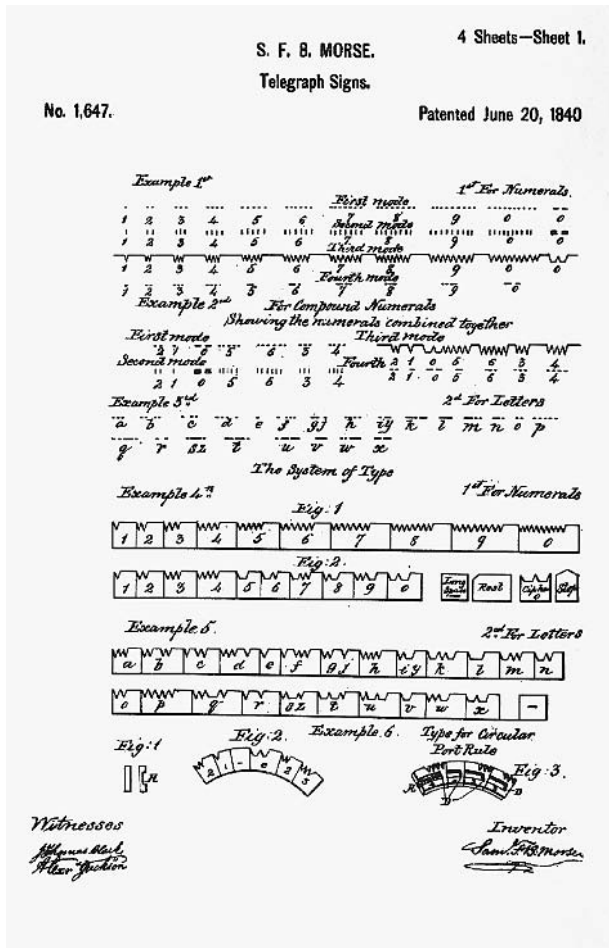 4 Sheets—Sheet 1.
S. F. B. MORSE.
Telegraph Signs.
No. 1,647. Patented June 20, 1840
Example 1st 1st For Numerals.
First mode
1 2 3 4 5 6 7 8 9 0 0
Second mode
1 2 3 4 5 6 7 8 9 0 0
Third mode
1 2 3 4 5 6 7 8 9 0 0
Fourth mode
1 2 3 4 5 6 7 8 9 0
Example 2nd For Compound Numerals
Showing the numerals combined together
First mode Third mode
2 1 0 5 6 3 4
Second mode Fourth 2 1 0 5 6 3 4
2 1 0 5 6 3 4 2 1 0 5 6 3 4
Example 3rd 2d For Letters
a b c d e f gj h iy k l m n o p
q r sz t u v w x
The System of Type
Example 4th 1st For Numerals
Fig: 1
1 2 3 4 5 6 7 8 9 0
Fig: 2.
1 2 3 4 5 6 7 8 9 0 Long Space Rest Cipher 0 Stop
Example 5. 2nd For Letters
a b c d e f gj h iy k l m n
o p q r sz t u v w x –
Example 6. Type for Circular
Port Rule
Fig: 1 Fig: 2. Fig: 3.
A 2 1 – e 2 3 A D D
Witnesses Inventor
Sam. F. B. Morse